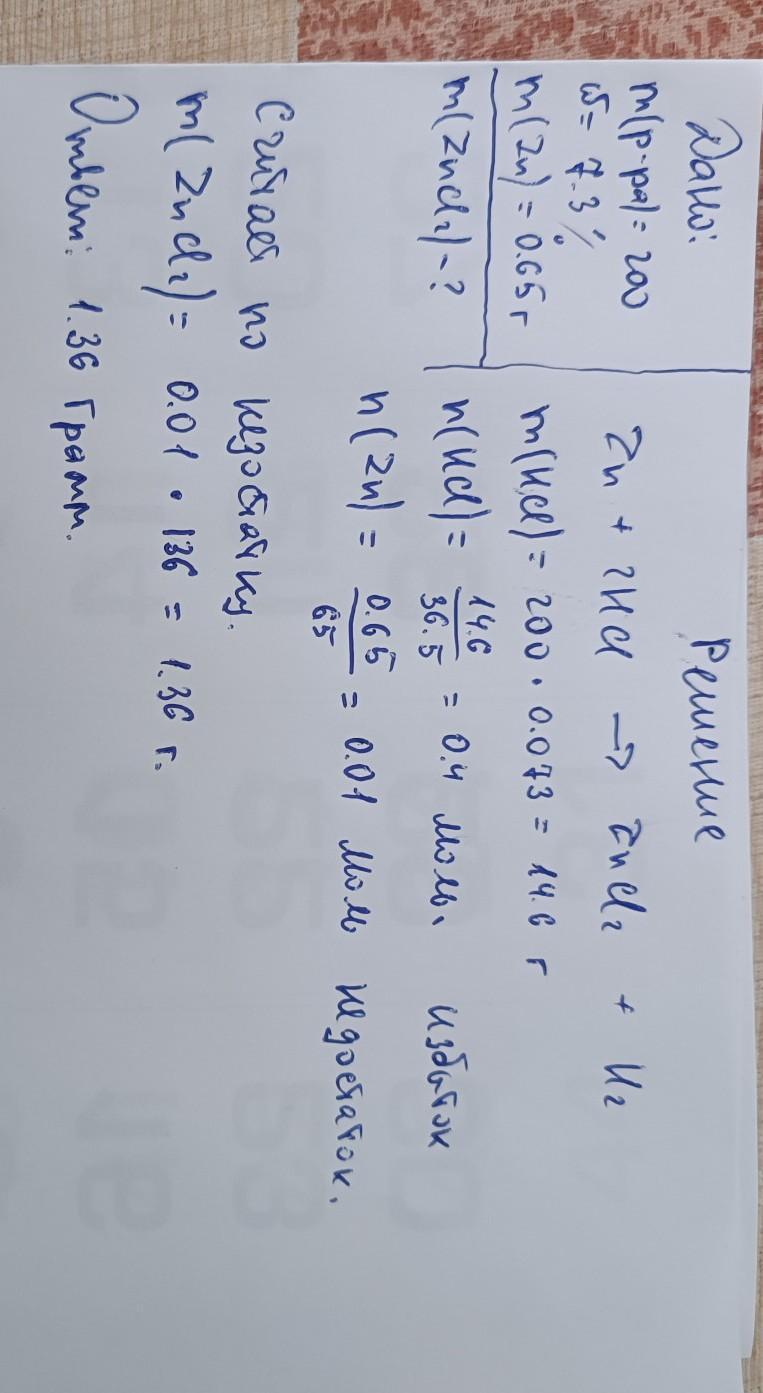 Дано:
m(р-ра) = 200
ω = 7.3 %
m(Zn) = 0.65 г
m(ZnCl₂) - ?
Решение
Zn + 2HCl → ZnCl₂ + H₂
m(HCl) = 200 · 0.073 = 14.6 г
n(HCl) = 14.6/36.5 = 0.4 моль. избыток
n(Zn) = 0.65/65 = 0.01 моль недостаток.
Считает по недостатку.
m(ZnCl₂) = 0.01 · 136 = 1.36 г.
Ответ: 1.36 Грамм.